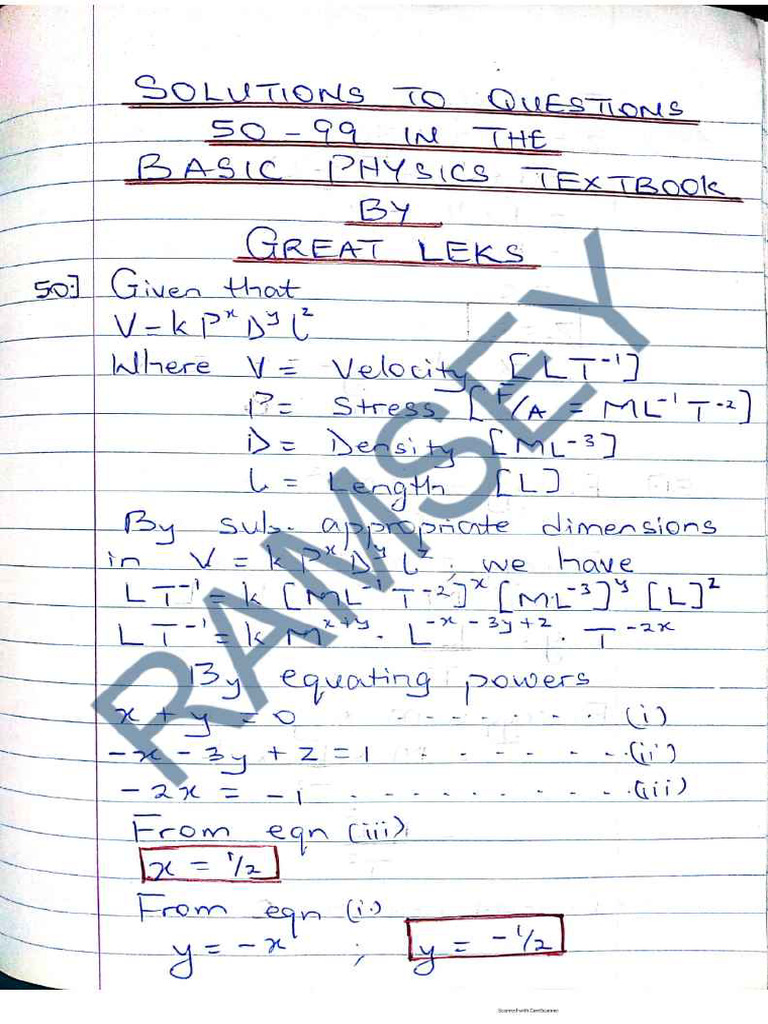 SOLUTIONS TO QUESTIONS
50-99 IN THE
BASIC PHYSICS TEXTBOOK
BY
GREAT LEKS
50] Given that
V = k Pˣ Dʸ lᶻ
Where V = Velocity [LT⁻¹]
P = Stress [F/A = ML⁻¹T⁻²]
D = Density [ML⁻³]
l = Length [L]
By sub. appropriate dimensions
in V = k Pˣ Dʸ lᶻ, we have
LT⁻¹ = k [ML⁻¹T⁻²]ˣ [ML⁻³]ʸ [L]ᶻ
LT⁻¹ = k Mˣ⁺ʸ · L⁻ˣ⁻³ʸ⁺ᶻ · T⁻²ˣ
By equating powers
x + y = 0 - - - - - - - - (i)
-x - 3y + z = 1 - - - - - - - (ii)
-2x = -1 - - - - - - - - - - (iii)
From eqn (iii)
x = 1/2
From eqn (i)
y = -x ; y = -1/2
RAMSEY
Scanned with CamScanner